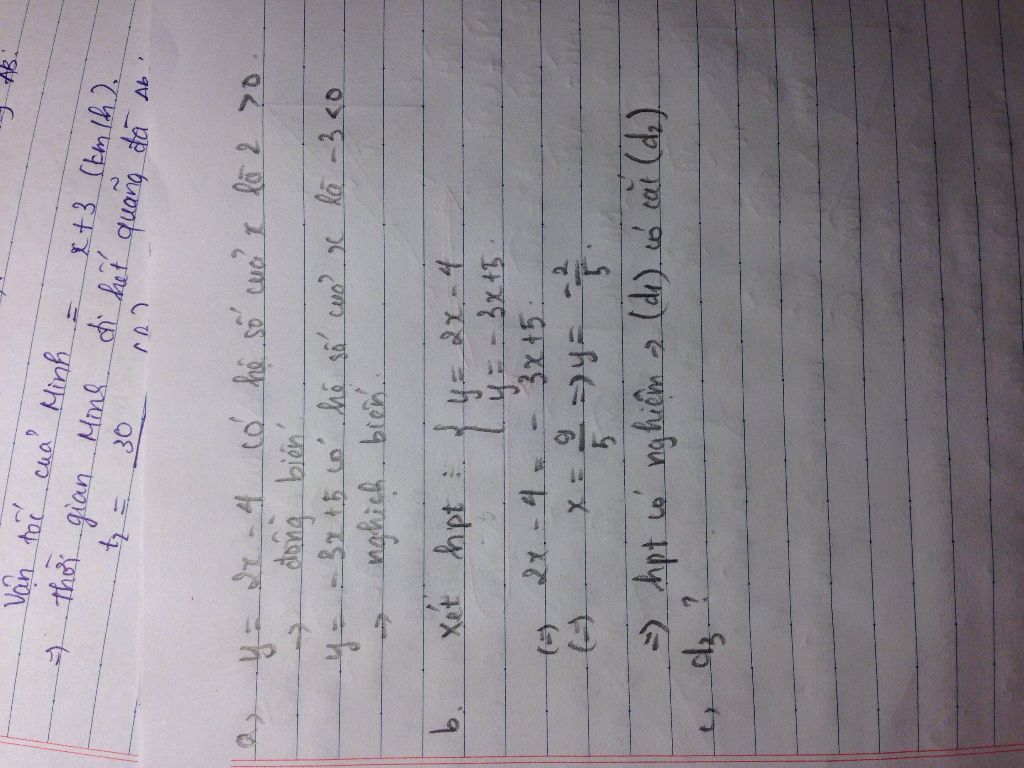 AB.
Vận tốc của Minh = x + 3 (km/h).
=) thời gian Minh đi hết quãng đg AB.
t2 = 30
a, y = 2x - 4 có hệ số của x là 2 > 0.
=) đồng biến
y = - 3x + 5 có hệ số của x là - 3 < 0
=) nghịch biến
b. Xét hpt : { y = 2x - 4
y = - 3x + 5.
(=) 2x - 4 = - 3x + 5.
(=) x = 9/5 => y = - 2/5.
=) hpt có nghiệm => (d1) có cắt (d2)
c, d3 ?